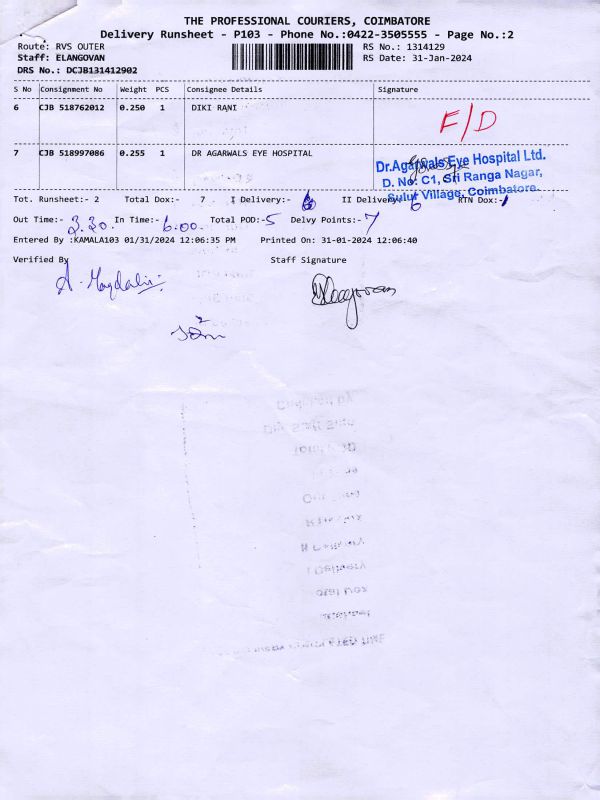 THE PROFESSIONAL COURIERS, COIMBATORE
Delivery Runsheet - P103 - Phone No.:0422-3505555 - Page No.:2
Route: RVS OUTER RS No.: 1314129
Staff: ELANGOVAN RS Date: 31-Jan-2024
DRS No.: DCJB131412902
S No Consignment No Weight PCS Consignee Details Signature
6 CJB 518762012 0.250 1 DIKI RANI F/D
7 CJB 518997086 0.255 1 DR AGARWALS EYE HOSPITAL
Dr.Agarwals Eye Hospital Ltd.
D. No: C1, Sri Ranga Nagar,
Sulur Village, Coimbatore.
Tot. Runsheet:- 2 Total Dox:- 7 I Delivery:- 6 II Delivery:- 6 RTN Dox:-1
Out Time:- 3.30. In Time:- 6.00. Total POD:-5 Delvy Points:-7
Entered By :KAMALA103 01/31/2024 12:06:35 PM Printed On: 31-01-2024 12:06:40
Verified By Staff Signature
A. Magdalin